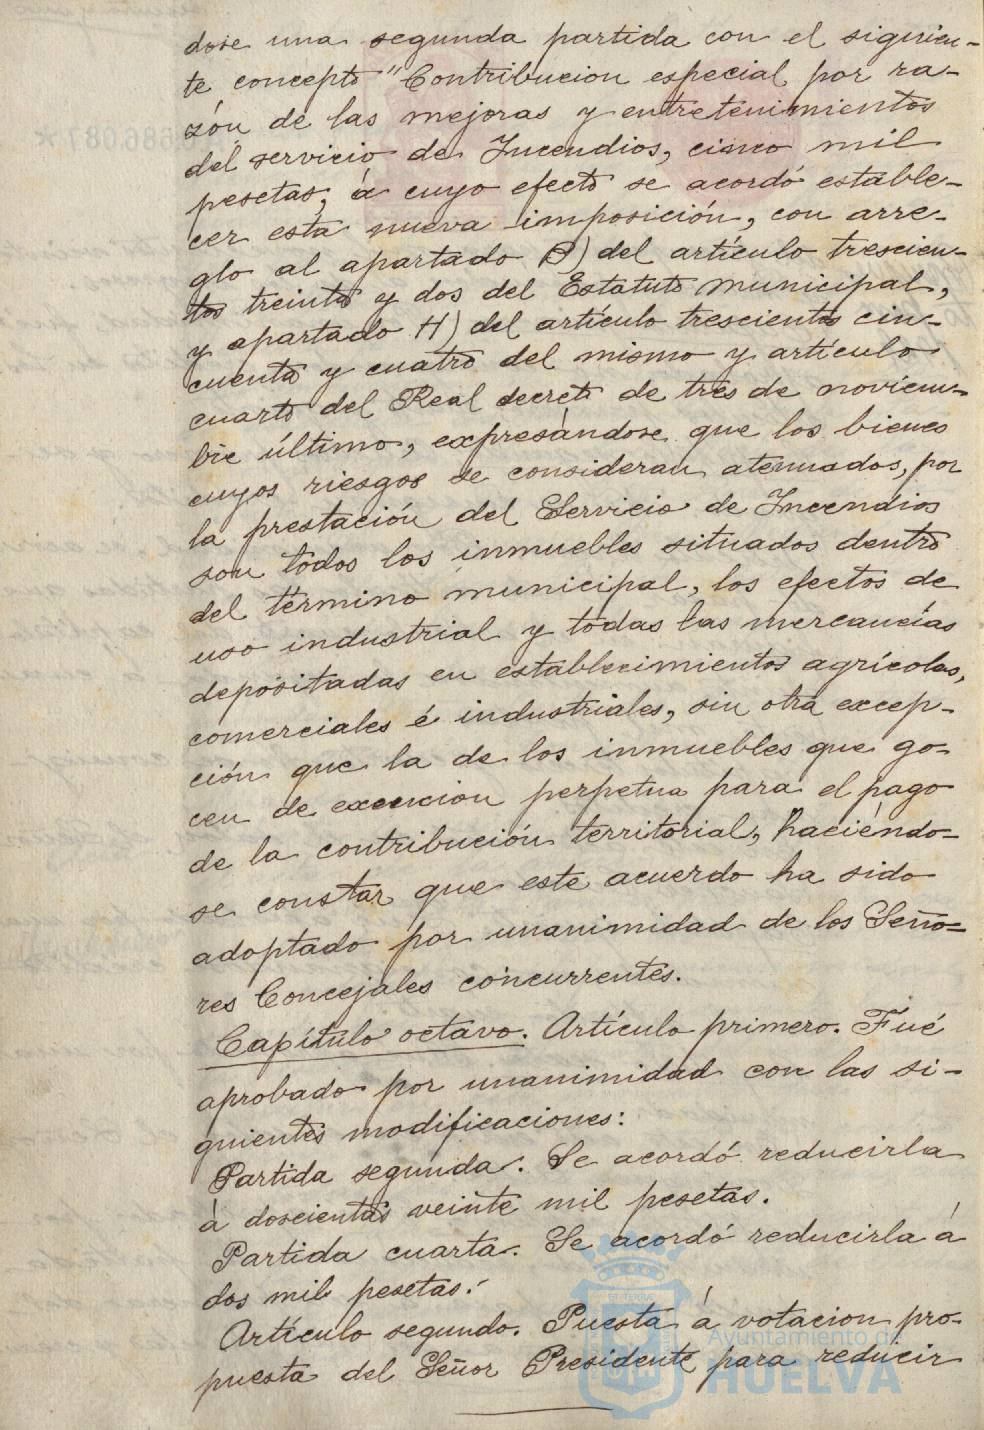 dose una segunda partida con el siguien-
te concepto "Contribucion especial por ra-
zón de las mejoras y entretenimientos
del servicio de Incendios, cinco mil
pesetas, á cuyo efecto se acordó estable-
cer esta nueva imposición, con arre-
glo al apartado B) del artículo trescien-
tos treinta y dos del Estatuto municipal,
y apartado H) del artículo trescientos cin-
cuenta y cuatro del mismo y artículo
cuarto del Real decreto de tres de noviem-
bre último, expresándose que los bienes
cuyos riesgos se consideran atenuados, por
la prestación del Servicio de Incendios
son todos los inmuebles situados dentro
del término municipal, los efectos de
uso industrial y todas las mercancías
depositadas en establecimientos agrícolas,
comerciales é industriales, sin otra excep-
ción que la de los inmuebles que go-
cen de exención perpetua para el pago
de la contribución territorial, haciéndo-
se constar que este acuerdo ha sido
adoptado por unanimidad de los Seño-
res Concejales concurrentes.
Capítulo octavo. Artículo primero. Fué
aprobado por unanimidad con las si-
guientes modificaciones:
Partida segunda. Se acordó reducirla
á doscientas veinte mil pesetas.
Partida cuarta. Se acordó reducirla á
dos mil pesetas.
Artículo segundo. Puesta á votacion pro-
puesta del Señor Presidente para reducir
Ayuntamiento de
HUELVA